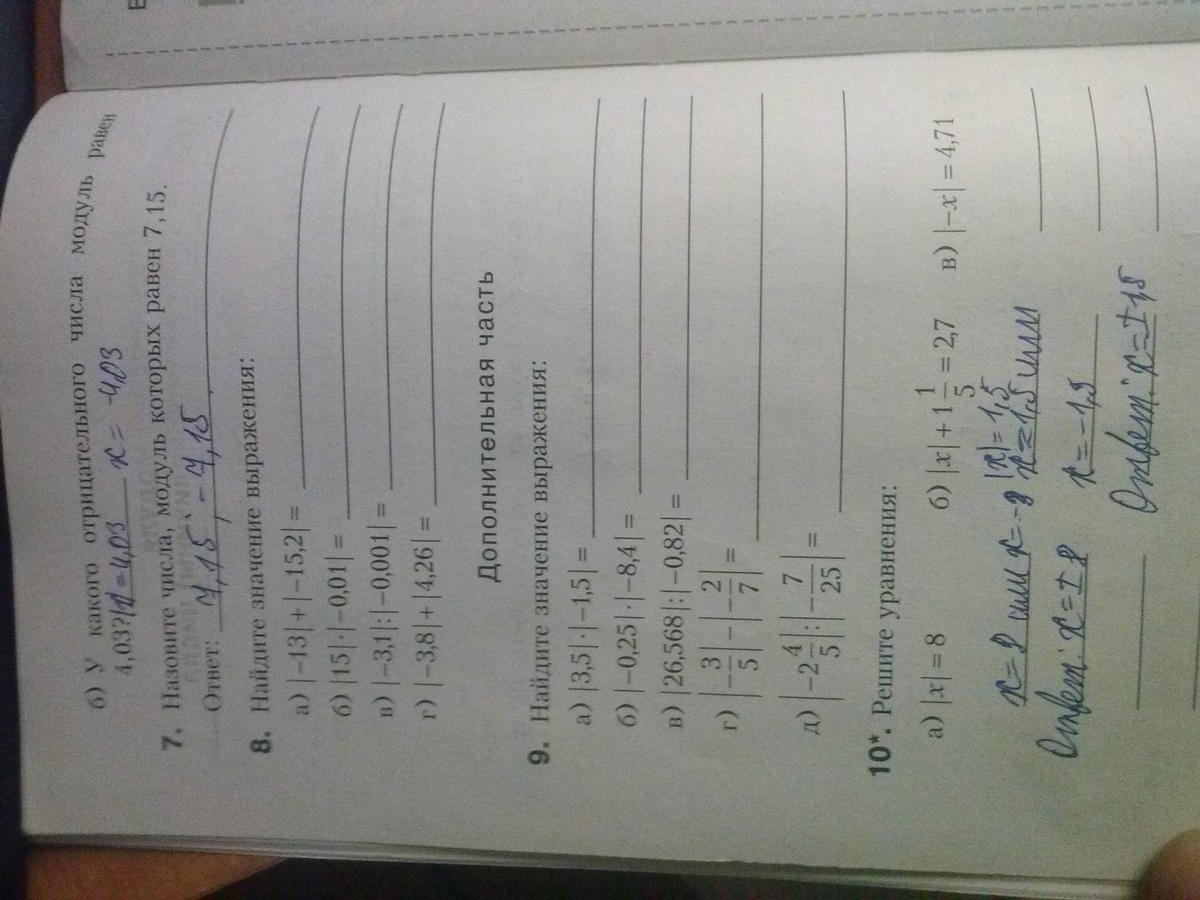 б) У какого отрицательного числа модуль равен
4,03? |x|=4,03 x = -4,03
7. Назовите числа, модуль которых равен 7,15.
Ответ: 7,15; -7,15
8. Найдите значение выражения:
а) |−13| + |−15,2| =
б) |15| · |−0,01| =
в) |−3,1| : |−0,001| =
г) |−3,8| + |4,26| =
Дополнительная часть
9. Найдите значение выражения:
а) |3,5| · |−1,5| =
б) |−0,25| · |−8,4| =
в) |26,568| : |−0,82| =
г) |−3/5| − |−2/7| =
д) |−2 4/5| : |−7/25| =
10*. Решите уравнения:
а) |x| = 8 б) |x| + 1 1/5 = 2,7 в) |−x| = 4,71
|x|=1,5
x=8 или x=-8 x=1,5 или
Ответ: x=±8 x=-1,5
Ответ: x=±1,5